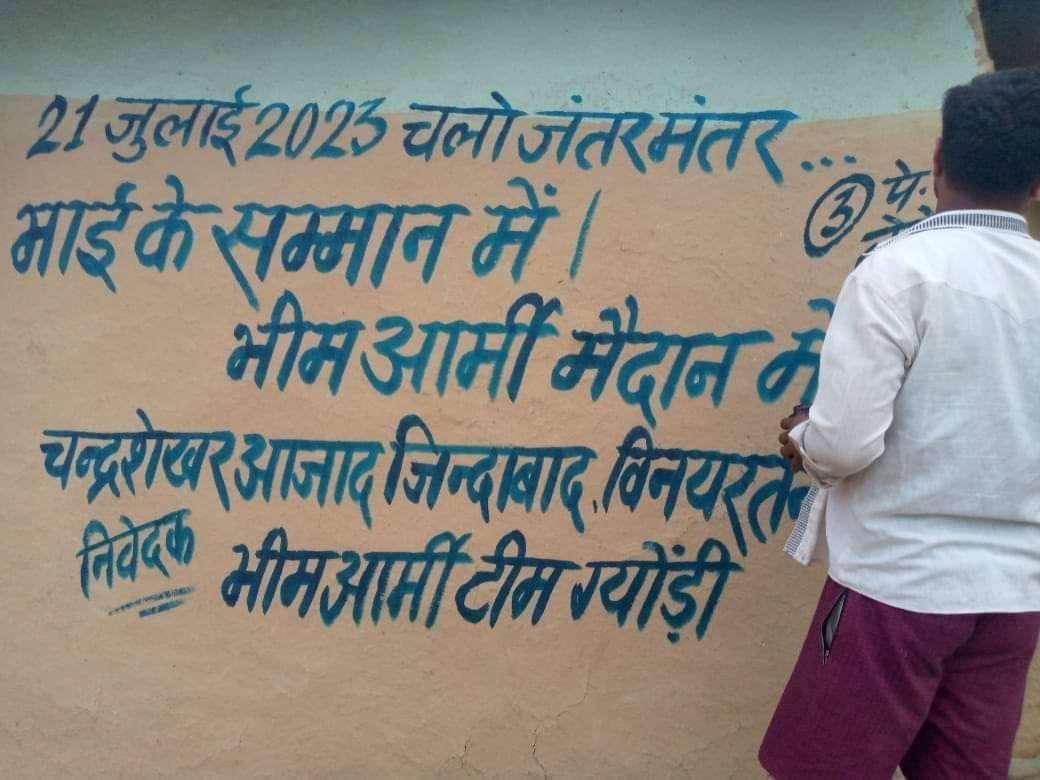 21 जुलाई 2023 चलो जंतरमंतर...
भाई के सम्मान में।
भीम आर्मी मैदान में
चन्द्रशेखर आजाद जिन्दाबाद, विनयरतन
निवेदक
भीम आर्मी टीम ग्योंड़ी
③ पे.